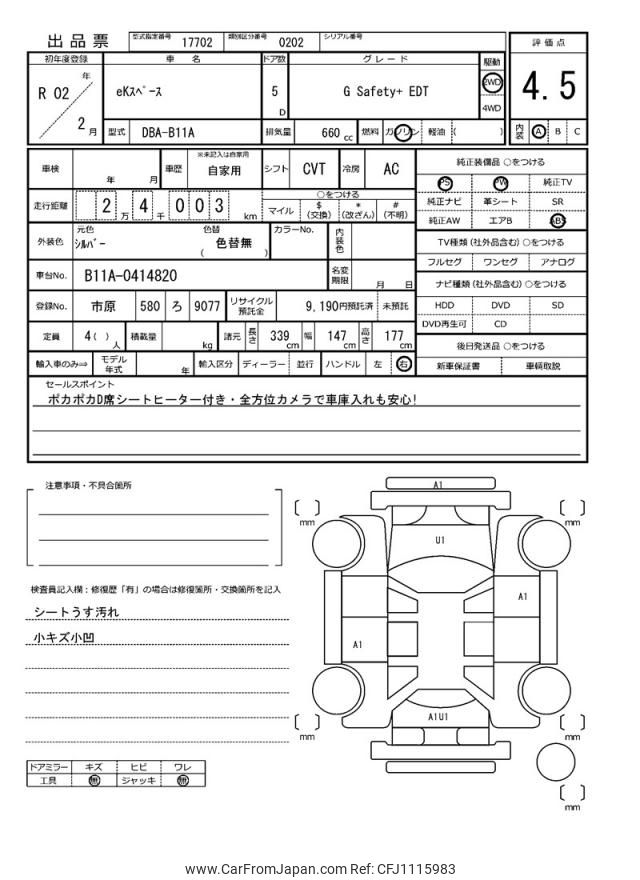 出品票 型式指定番号 17702 類別区分番号 0202 シリアル番号
初年度登録 車名 ドア数 グレード 駆動 評価点
R 02 年 2 月 eKｽﾍﾟｰｽ 5 D G Safety+ EDT 2WD 4WD 4.5
型式 DBA-B11A 排気量 660 cc 燃料 ガソリン 軽油 ( ) 内装 A B C
車検 年 月 車歴 ※未記入は自家用 自家用 シフト CVT 冷房 AC 純正装備品 ○をつける
PS PW 純正TV
走行距離 2 万 4 千 0 0 3 km ○をつける
マイル $ (交換) * (改ざん) # (不明)
純正ナビ 革シート SR
純正AW エアB ABS
外装色 元色 ｼﾙﾊﾞｰ 色替 ( 色替無 ) カラーNo. 内装色
TV種類 (社外品含む) ○をつける
フルセグ ワンセグ アナログ
車台No. B11A-0414820 名変期限 月 日
ナビ種類 (社外品含む) ○をつける
登録No. 市原 580 ろ 9077 リサイクル預託金 9,190円預託済 未預託
HDD DVD SD
DVD再生可 CD
定員 4( ) 人 積載量 kg 諸元 長さ 339 cm 幅 147 cm 高さ 177 cm
後日発送品 ○をつける
輸入車のみ⇒ モデル年式 年 輸入区分 ディーラー 並行 ハンドル 左 右
新車保証書 車輌取説
セールスポイント
ポカポカD席シートヒーター付き・全方位カメラで車庫入れも安心!
注意事項・不具合箇所
検査員記入欄：修復歴「有」の場合は修復箇所・交換箇所を記入
シートうす汚れ
小キズ小凹
ドアミラー キズ ヒビ ワレ
工具 無 ジャッキ 無
A1
[ ] mm
[ ] mm
U1
A1
A1
A1U1
[ ] mm
[ ] mm
[ ] mm
www.CarFromJapan.com Ref: CFJ1115983